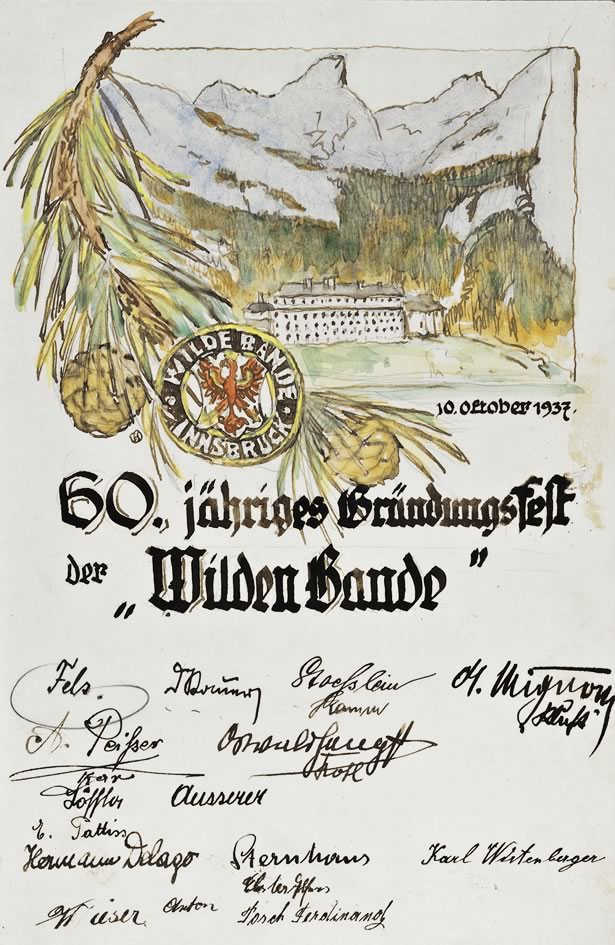 WILDE BANDE
INNSBRUCK
10. Oktober 1937.
60. jähriges Gründungsfest
der „Wilden Bande"
Fels.
Stoesslein
M. Mignon
A. Peisser
Oswald
Kar
Löffler Ausserer
E. Tattiss
Hermann Delago Sternhaus Karl Wistenberger
Wieser Anton Posch Ferdinand